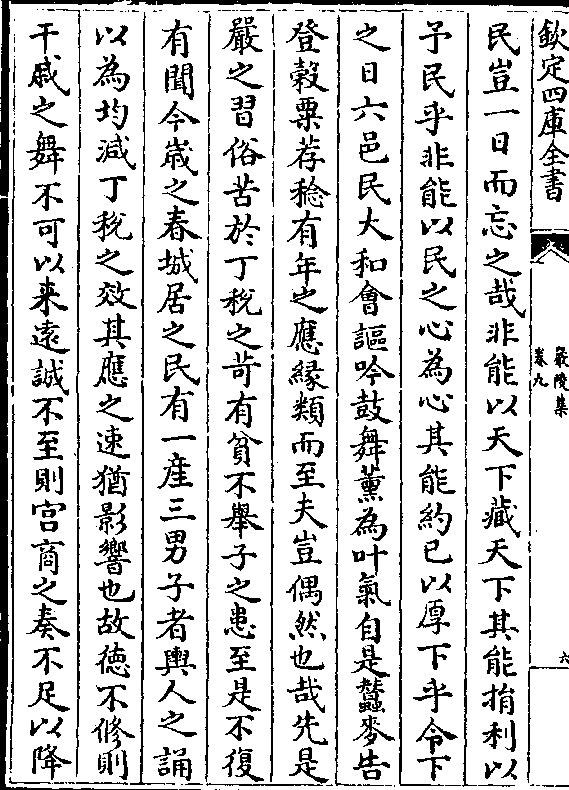 欽定四庫全書
嚴陵集
卷九
六
民豈一日而忘之哉非能以天下藏天下其能捐利以
予民乎非能以民之心為心其能約已以厚下乎令下
之日六邑民大和會謳吟鼓舞薰為叶氣自是蠶麥告
登穀粟荐稔有年之應縁類而至夫豈偶然也哉先是
嚴之習俗苦於丁稅之苛有貧不舉子之患至是不復
有聞今歳之春城居之民有一産三男子者輿人之誦
以為均減丁稅之效其應之速猶影響也故德不修則
干戚之舞不可以来逺誠不至則宫商之奏不足以降